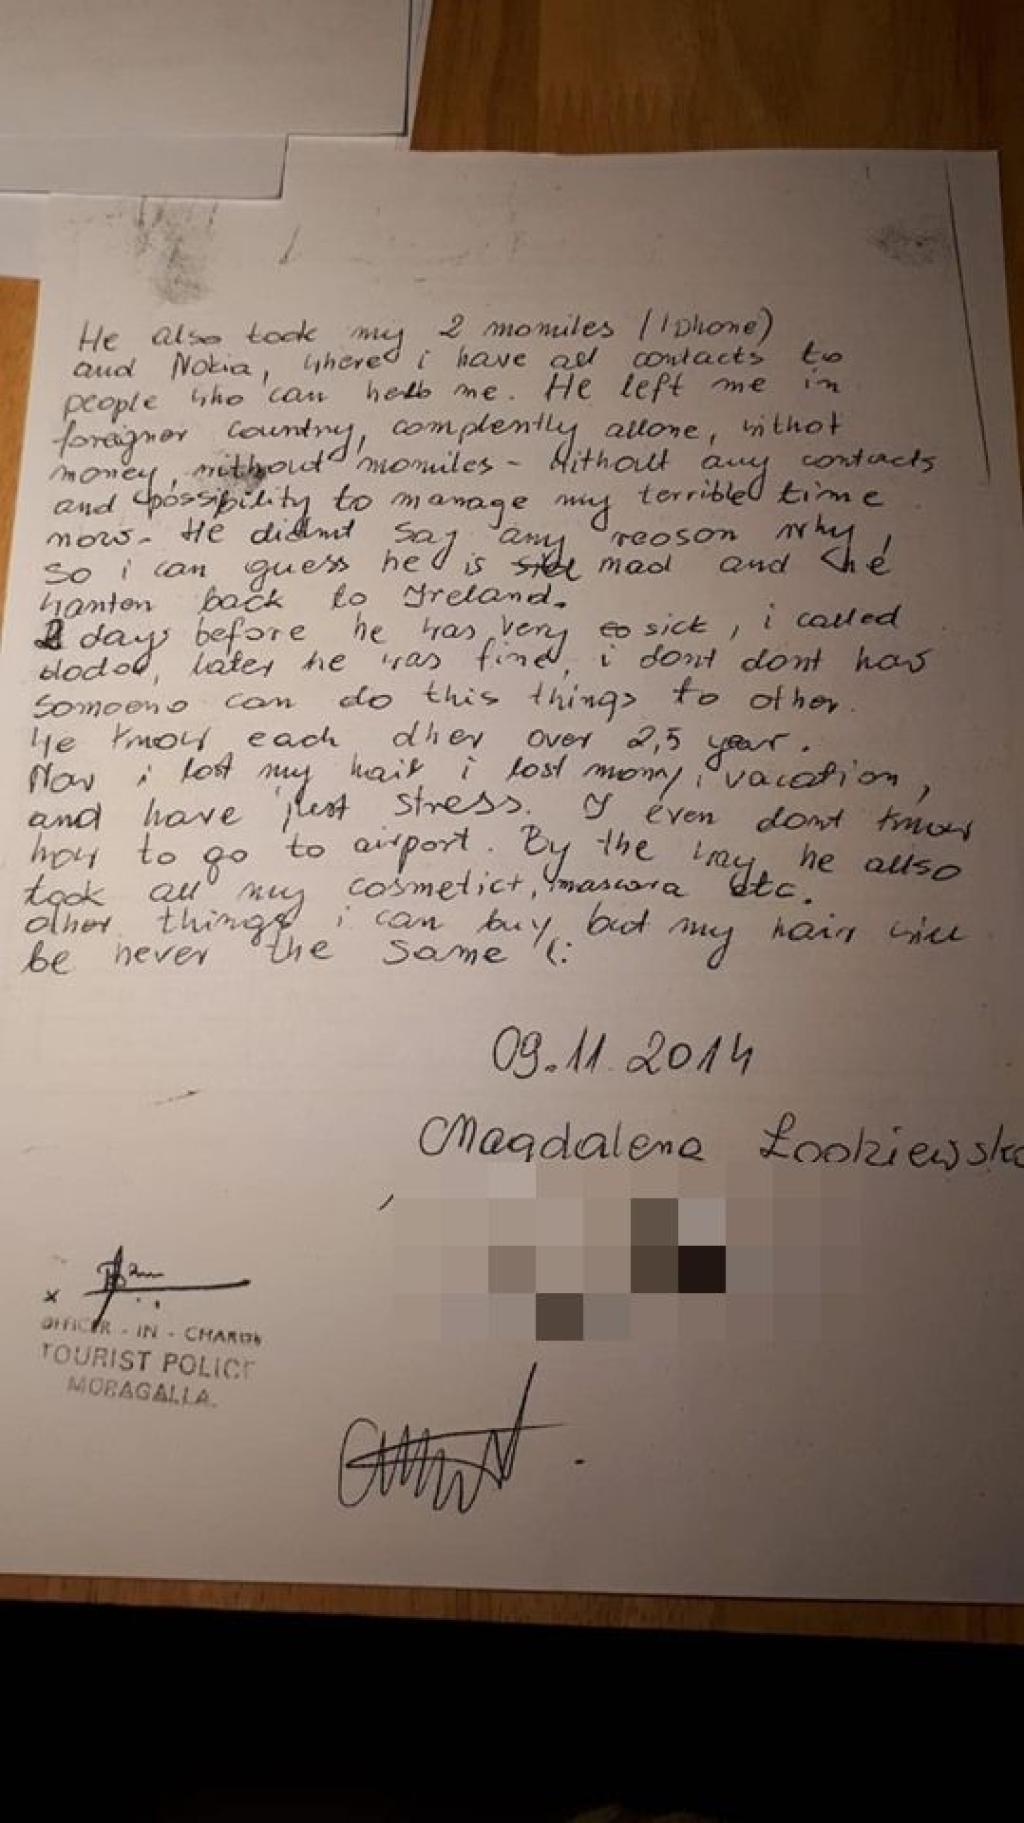 He also took my 2 momiles (Iphone)
and Nokia, where i have all contacts to
people who can help me. He left me in
foreigner country, complently allone, withot
money, without momiles - Without any contacts
and possibility to manage my terrible time
now. He didnt say any reoson why,
so i can guess he is mad and he
wanton back to Ireland.
2 days before he was very sick, i called
doctor, later he was fine, i dont dont how
someone can do this things to other.
We know each other over 2,5 year.
Now i lost my hair i lost mony, vacation,
and have just stress. I even dont know
how to go to airport. By the way he allso
took all my cosmetict, mascara etc.
other things i can buy but my hair will
be never the same (:
09.11.2014
Magdalena
x
OFFICER - IN - CHARGE
TOURIST POLICE
MORAGALLA.